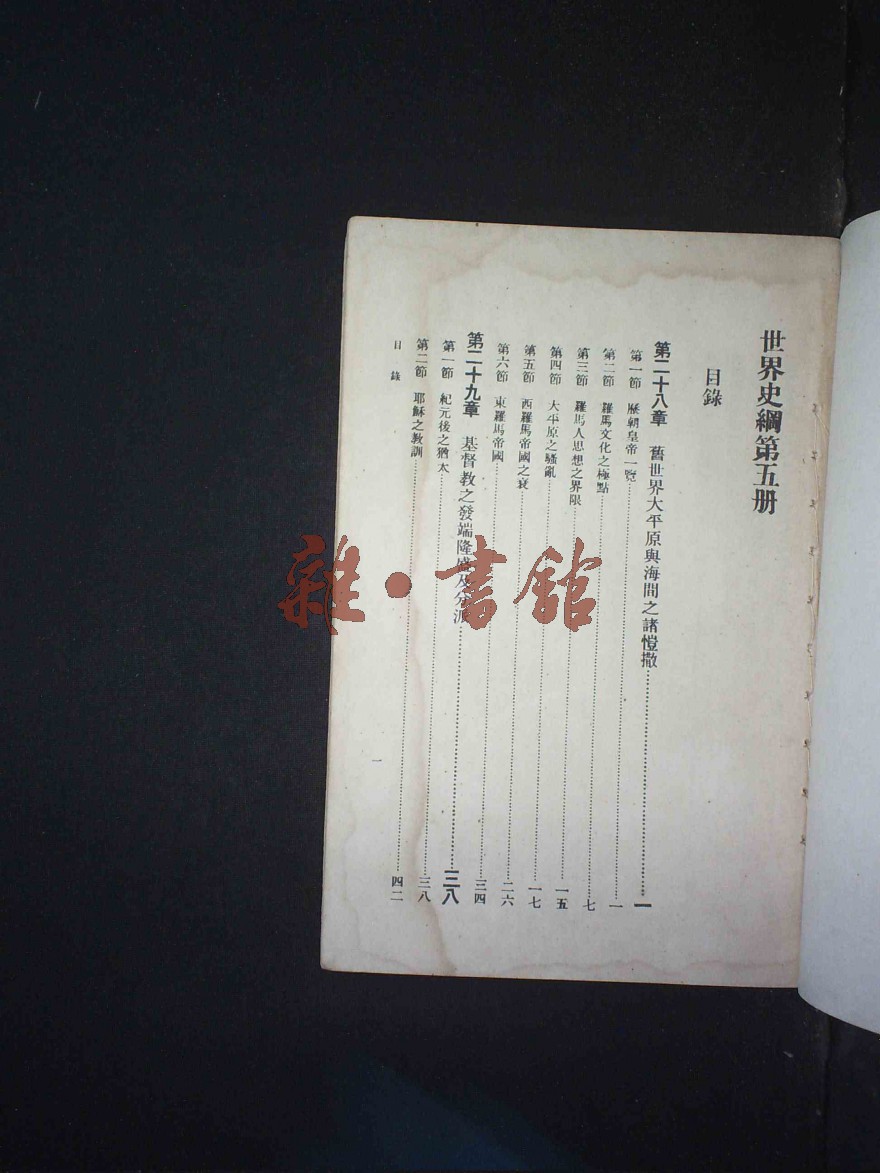 世界史綱第五册
目錄
第二十八章 舊世界大平原與海間之諸愷撒 一
第一節 歷朝皇帝一覽 一
第二節 羅馬文化之極點 七
第三節 羅馬人思想之界限 一五
第四節 大平原之騷亂 一七
第五節 西羅馬帝國之衰 二六
第六節 東羅馬帝國 三四
第二十九章 基督教之發端隆盛及分派 三八
第一節 紀元後之猶太 三八
第二節 耶穌之教訓 四二
目錄
一
雜·書館